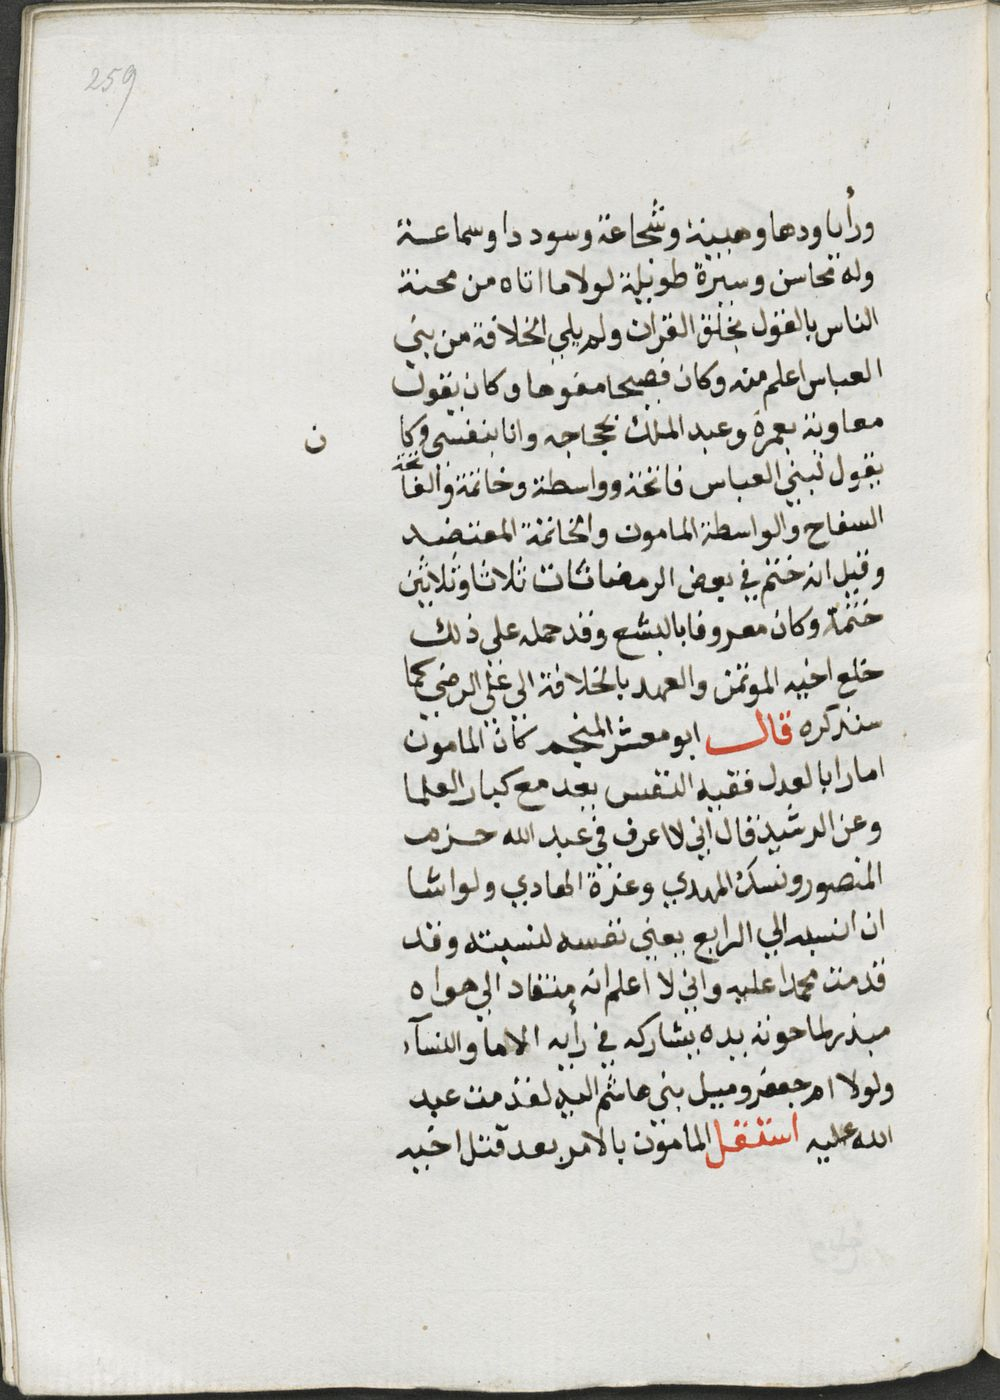 259
ورأيا ودها وهيبة وشجاعة وسوددا وسماعة
وله محاسن وسيرة طويلة لولا ما اتاه من محنة
الناس بالقول بخلق القران ولم يلي الخلافة من بني
العباس اعلم منه وكان فصيحا مفوها وكان يقول
معاوية بعمرة وعبد الملك بحجاجه وانا بنفسي وكا
ن
يقول لبني العباس فاتحة وواسطة وخاتمة والفاتحة
السفاح والواسطة المامون والخاتمة المعتضد
وقيل انه ختم في بعض الرمضانات ثلاثا وثلاثين
ختمة وكان معروفا بالتشع وقد حمله على ذلك
خلع اخيه الموتمن والعهد بالخلافة الى على الرضي كما
سنذكره قال ابو معشر المنجم كان المامون
امارا بالعدل فقيه النفس يعد مع كبار العلما
وعن الرشيد قال اني لا اعرف في عبد الله حزم
المنصور ونسك المهدي وعزة الهادي ولو اشا
ان انسبه الي الرابع يعني نفسه لنسبته وقد
قدمت محمدا عليه واني لا اعلم انه منقاد الي هواه
مبذر لما حوته يده يشاركه في رأيه الاما والنسآء
ولولا ام جعفر وميل بني هاشم اليه لقدمت عبد
الله عليه استقل المامون بالامر بعد قتل اخيه